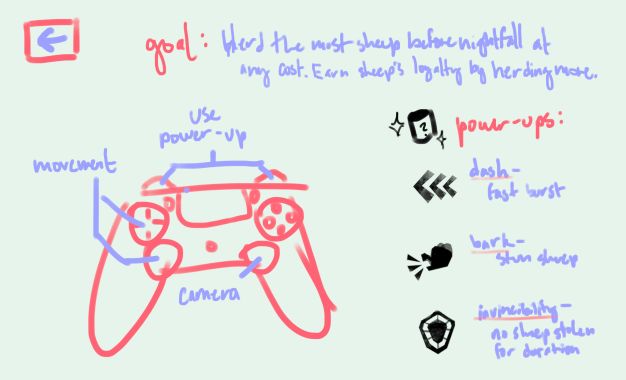 goal: Herd the most sheep before nightfall at
any cost. Earn sheep's loyalty by herding more.
use
power-up
movement
camera
?
power-ups:
dash-
fast burst
bark-
stun sheep
invincibility-
no sheep stolen
for duration